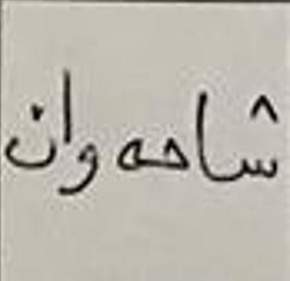 شاحەوان